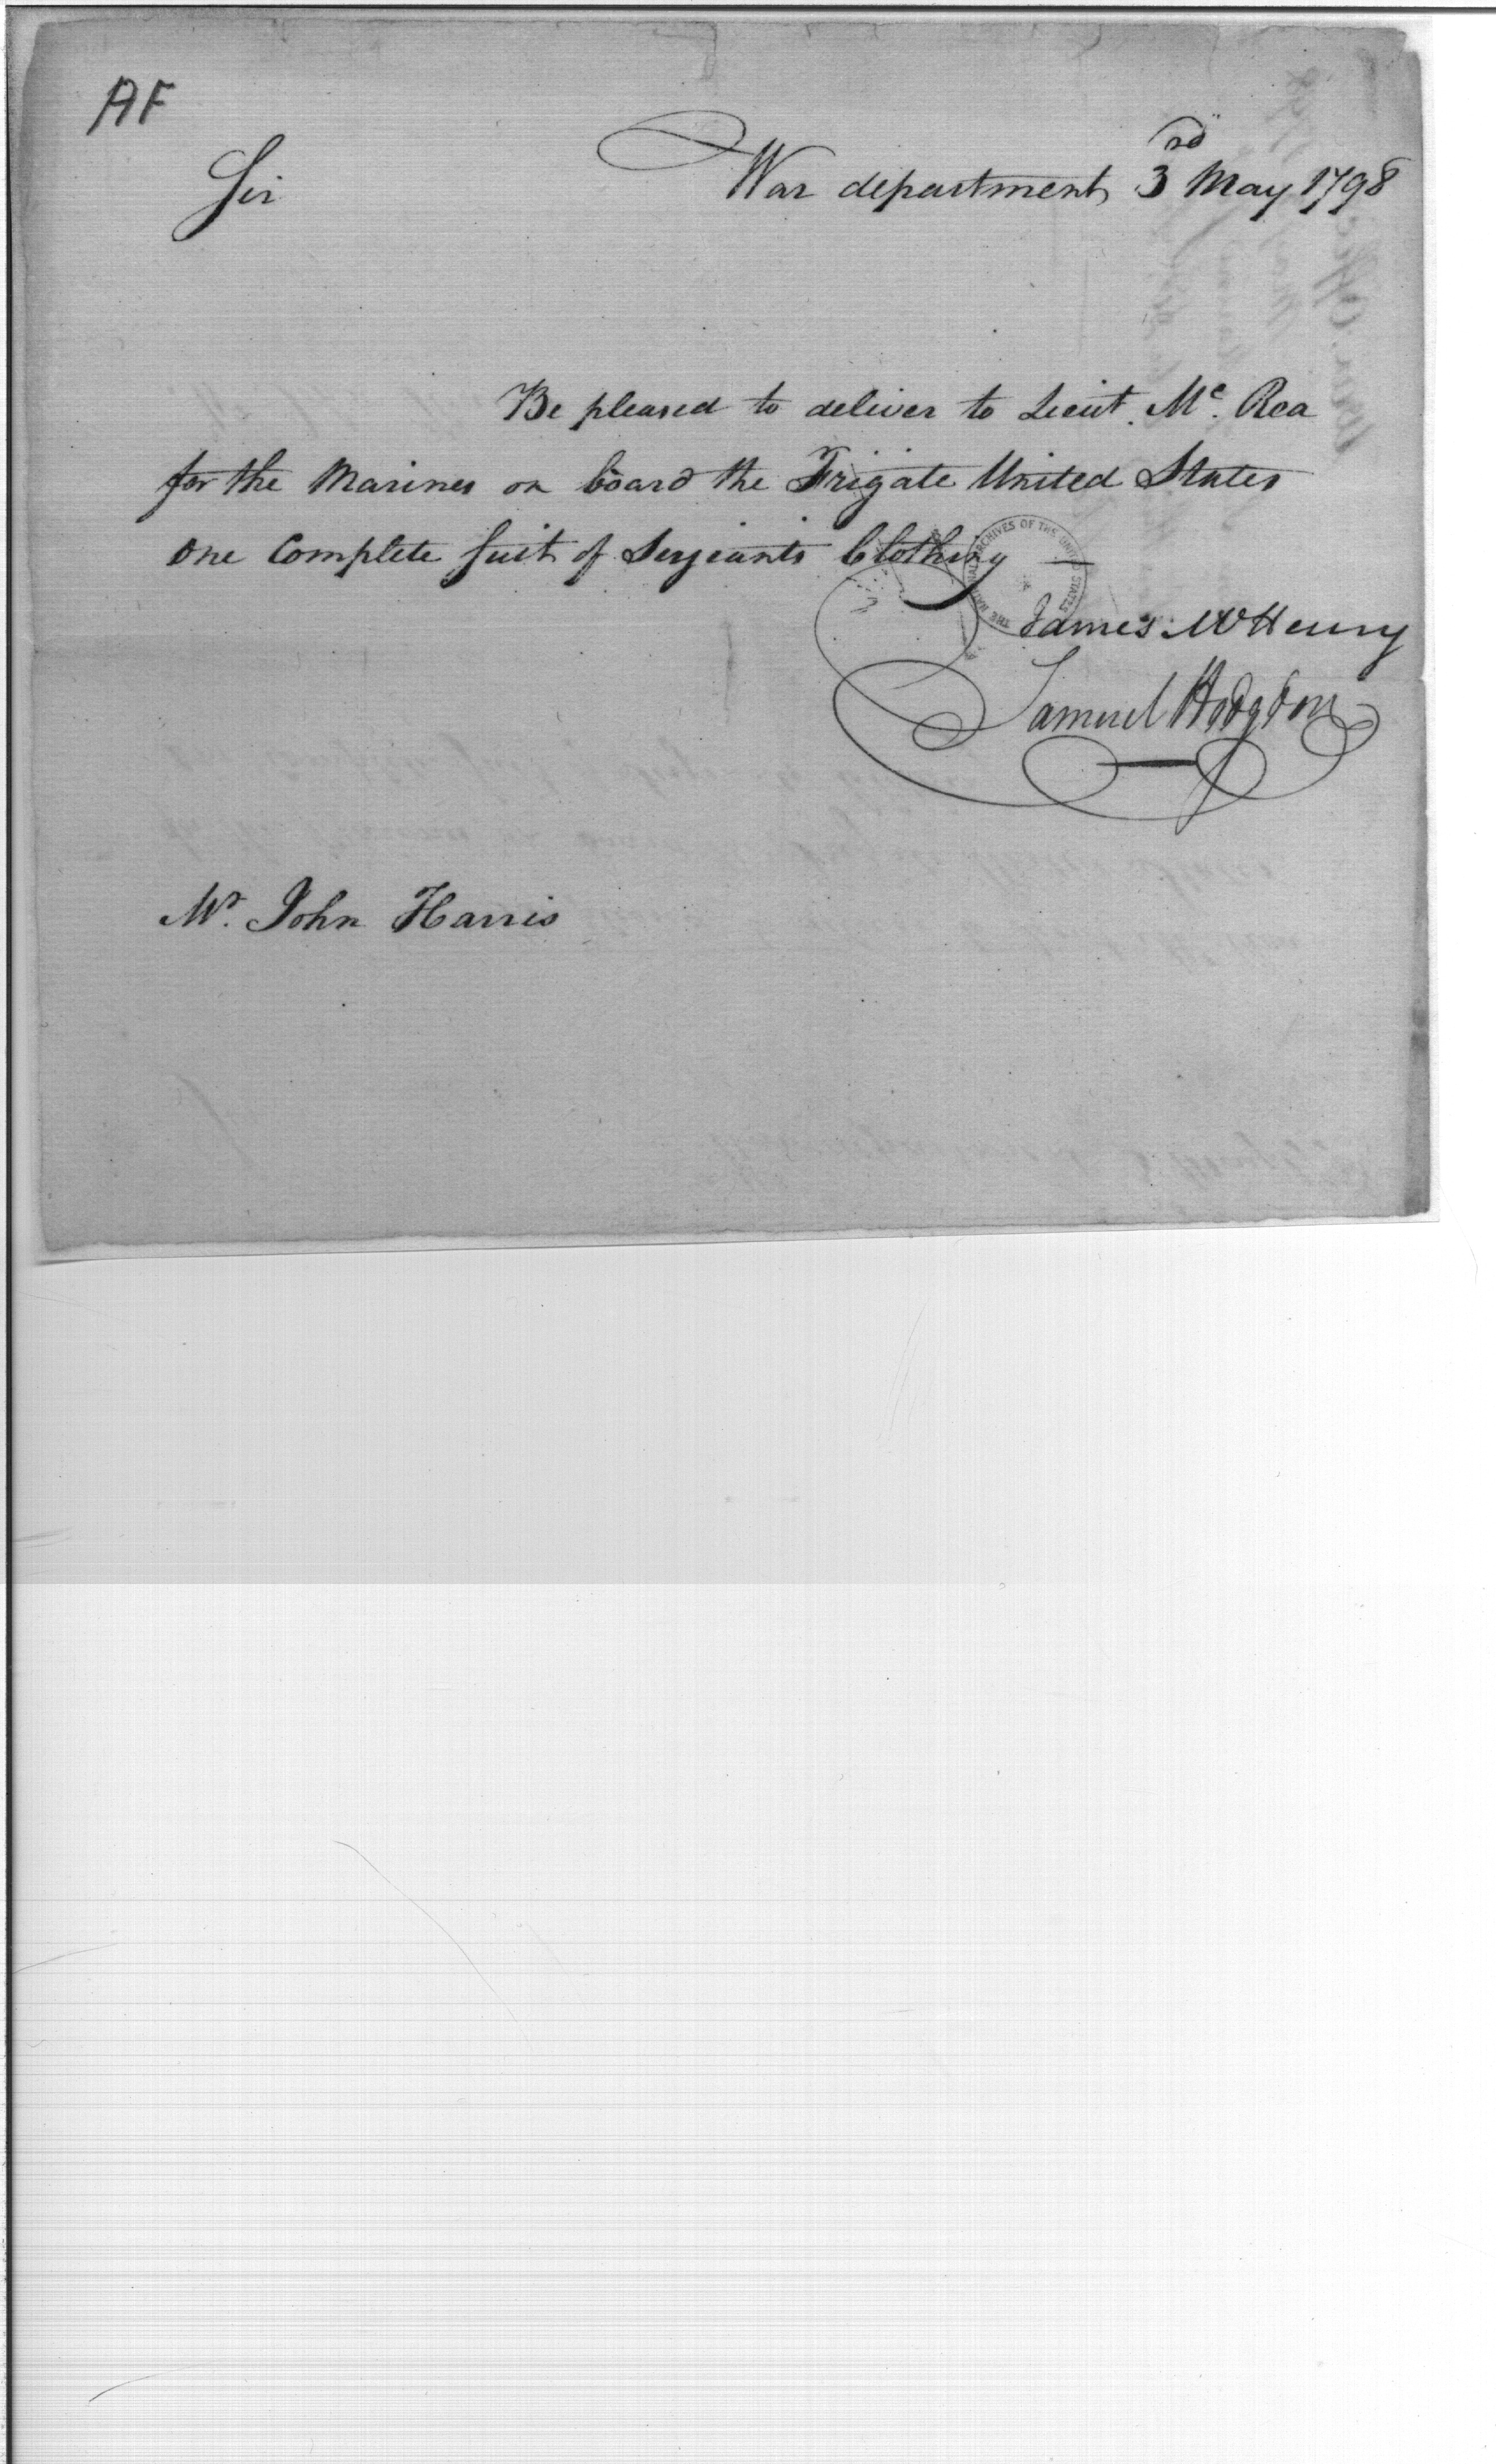 AF
War department 3rd May 1798
Sir
Be pleased to deliver to Lieut. Mc. Rea
for the Marines on board the Frigate United States
one Complete Suit of Serjeants Clothing —
THE NATIONAL ARCHIVES OF THE UNITED STATES
James McHenry
Samuel Hodgdon
Mr. John Harris